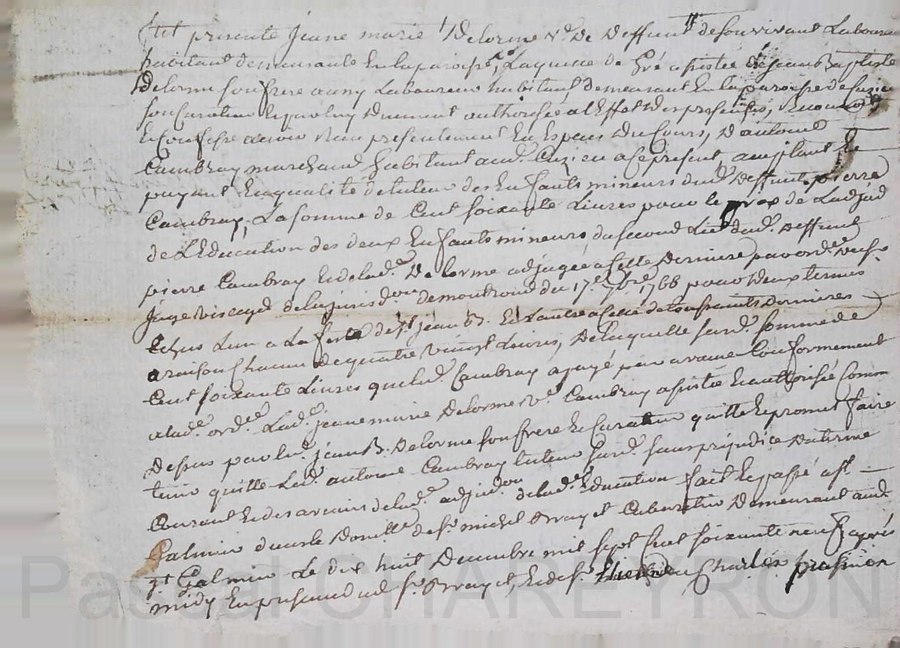 Est presente jeane marie Delorme v.e de Deffunt de son vivant Laboureur
habitant demeurante En la paroisse, Laquelle de Gré assistée de jean Baptiste
Delorme son frere aussy Laboureur habitant demeurant En la paroisse de Cuzieu
son Curateur Duement authorisée a l'Effet des presentes,
Confesse avoir Reçu presentement En Especes du Cours, D'antoine
Cambray marchand habitant aud. Cuzieu a ce present, acceptant Et
payant En qualité de tuteur des Enfants mineurs dud. Deffunt pierre
Cambray, La somme de Cent soixante Livres pour le prix de L'adjud
de L'Education des deux Enfants mineurs, du second Lict dud. Deffunt
pierre Cambray Et de lad. Delorme adjugée a cette Derniere par ord.ce de
juge de la jurisd.on de montrond du 17.e 7bre 1768 pour deux termes
Echus L'un a La feste de S.t jean B. Et L'autre a celle de toussaints dernieres
a raison chacun de quatre vingt Livres, De laquelle susd. somme de
Cent soixante Livres que led. Cambray a payé Conformement
a lad. ord.ce Lad. jeane marie Delorme v.e Cambray assistée Et authorisée Comme
dessus par led. jean B. Delorme son frere Et Curateur quitte Et promet faire
tenir quitte Led. antoine Cambray tuteur susd. sans préjudice du terme
Courant Et des avenirs de lad. adjud.on de lad. Education fait Et passé a St
Galmier dans le Domille de S.r michel Orvay et Cabaretier Demeurant aud.
S.t Galmier Le dix huit Decembre mil sept Cent soixante neuf après
midy En presence dud. S.r Orvay et, Et de S.r Charles
Pascal CHAREYRON